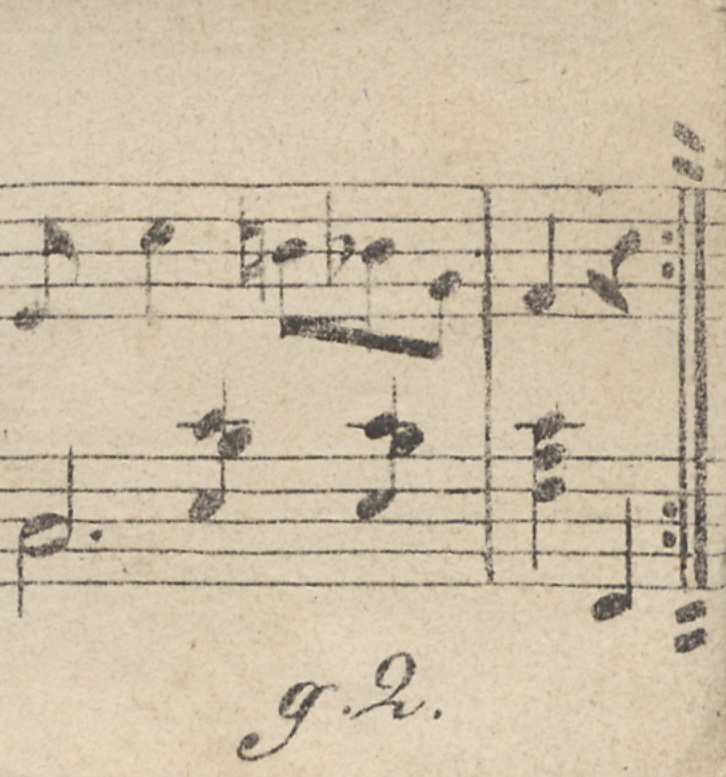 g. 2.